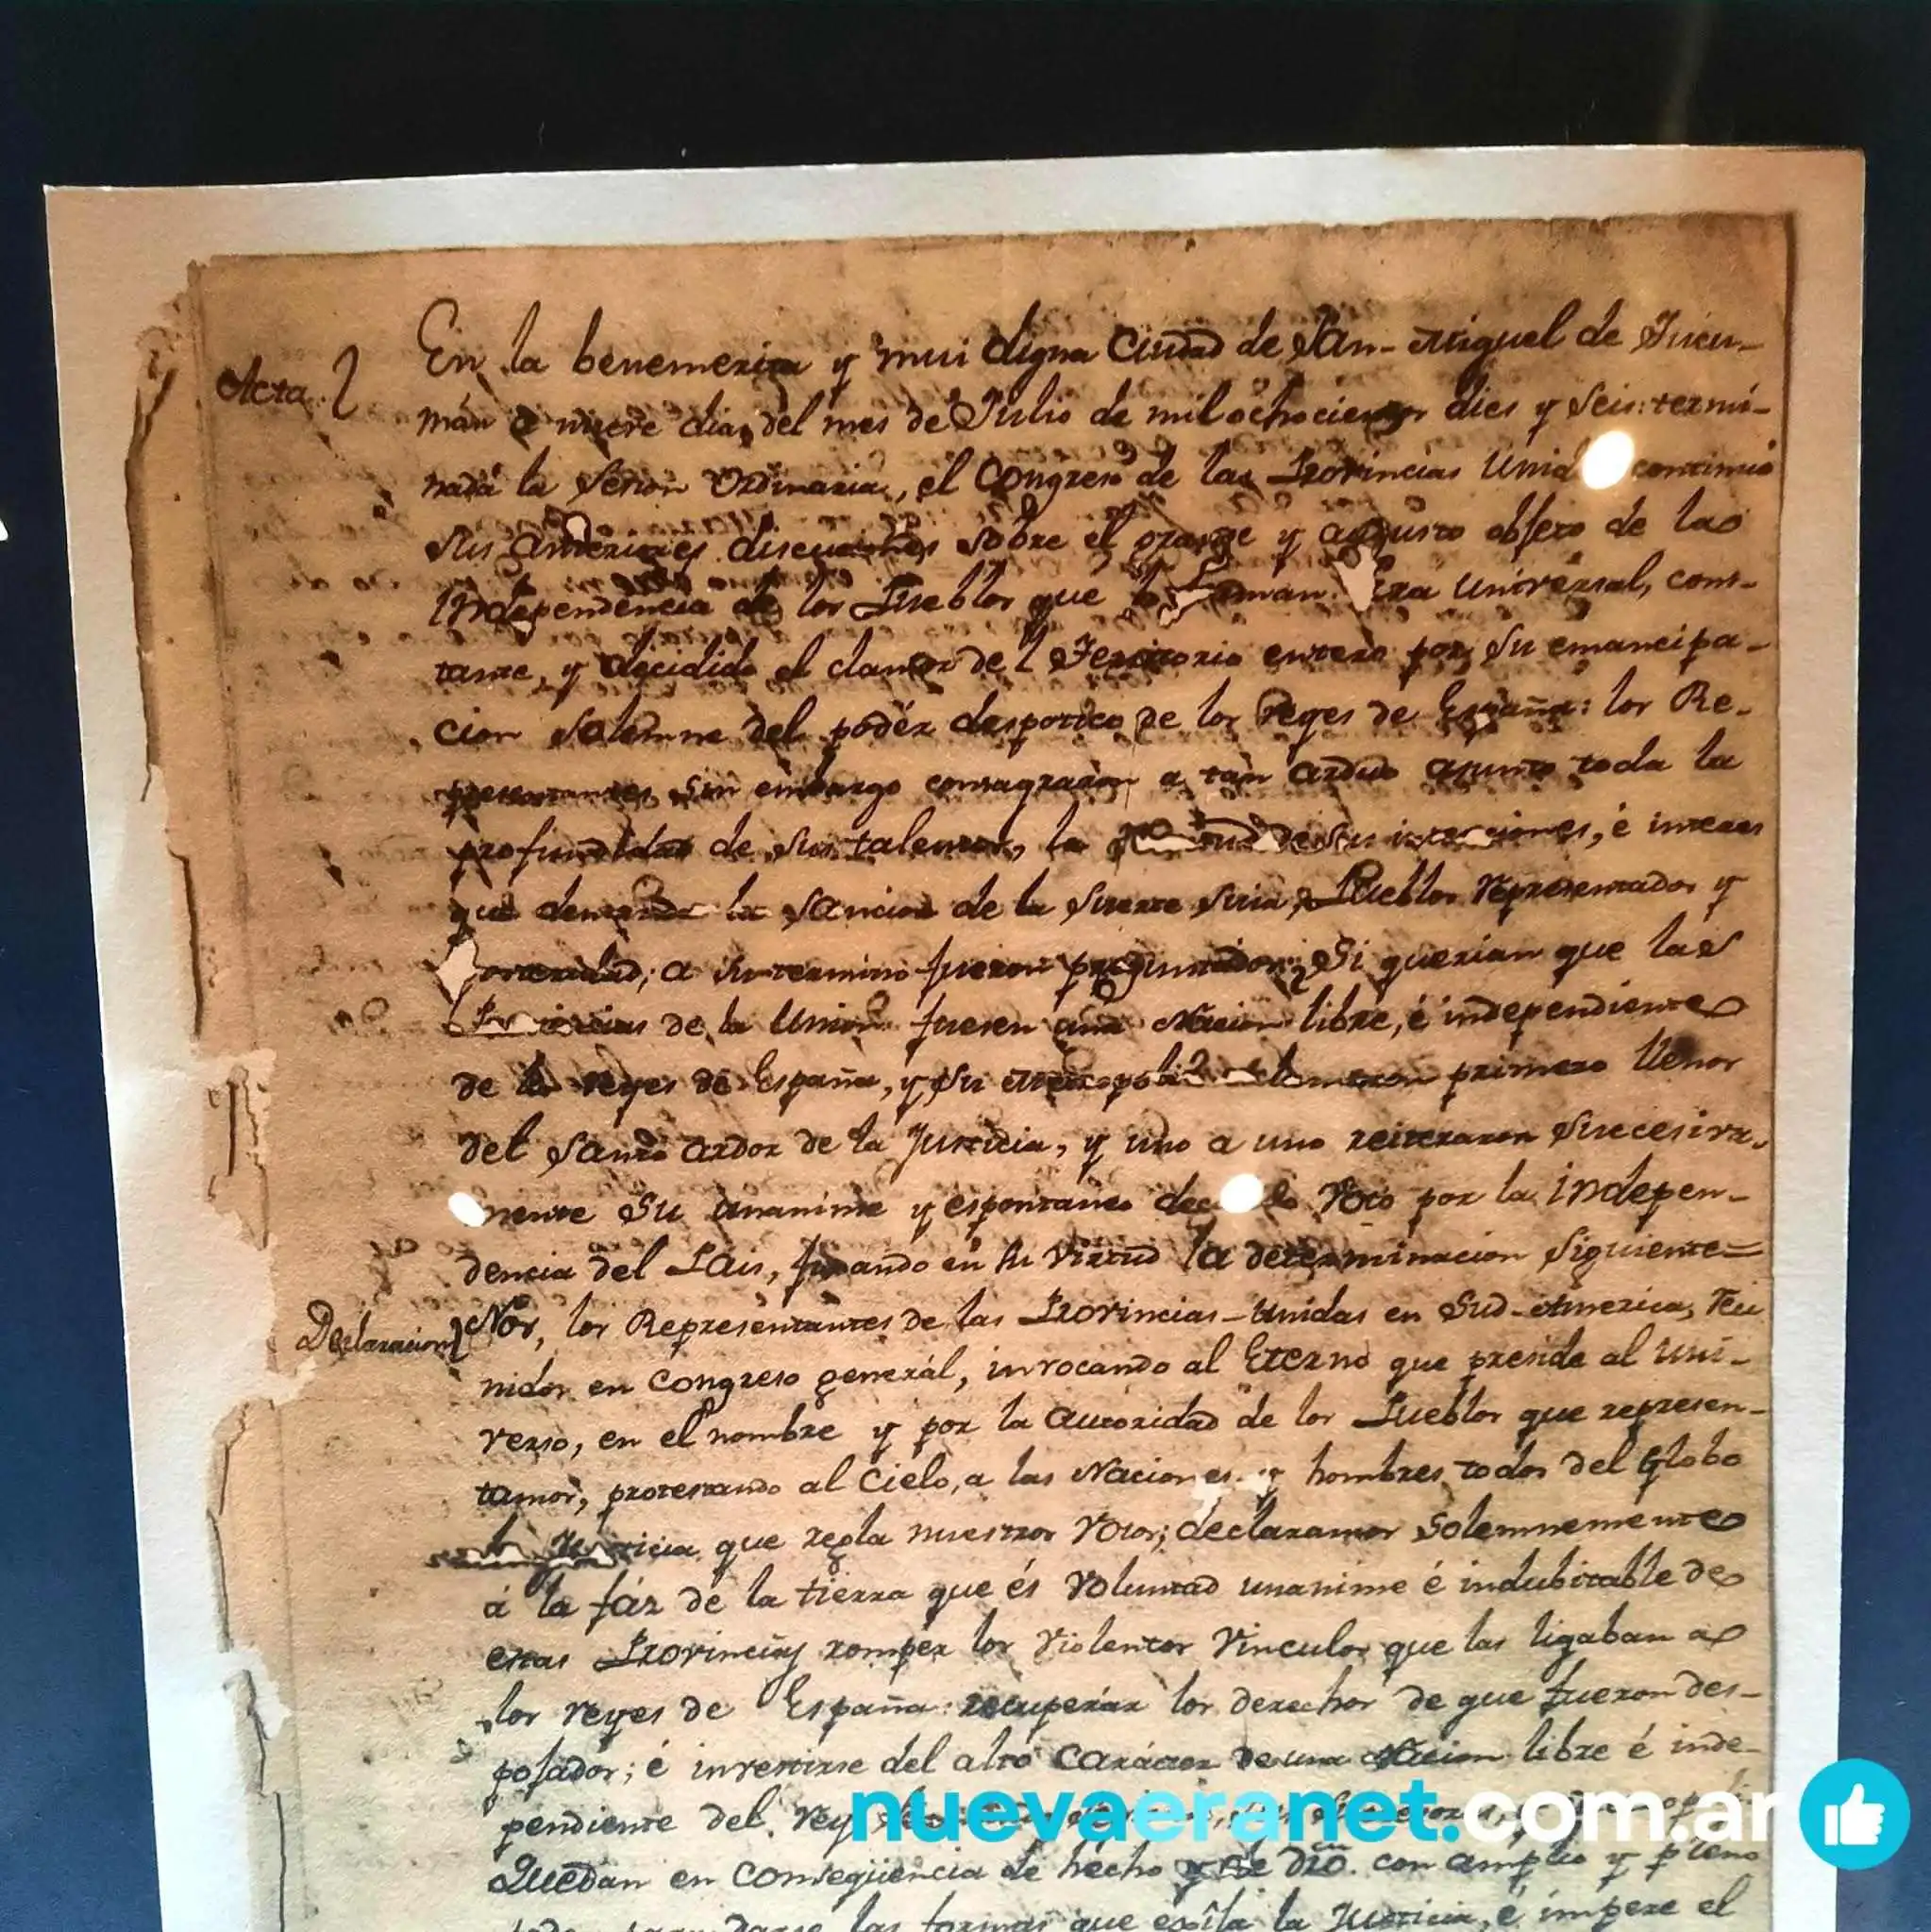 Acta
En la benemerita y mui digna Ciudad de San-Miguel de Tucu-
mán a nueve dias del mes de Julio de mil ochocientos dies y seis: termi-
nada la Sesion Ordinaria, el Congreso de las Provincias Unid continuó
sus anteriores discusiones sobre el grande y augusto objeto de la
Independencia de los Pueblos que lo forman. Era universal, cons-
tante, y decidido el clamor del Territorio entero por su emancipa-
cion solemne del podér despotico de los reyes de España: los Re-
presentantes sin embargo consagraron a tan arduo asunto toda la
profundidad de sus talentos, la rectitud de sus intenciones, é interes
que demanda la sancion de la suerte suia, Pueblos representados y
posteridad; a su termino fueron preguntados: Si querian que las
Provincias de la Union fuesen una Nacion libre, é independiente
de los reyes de España, y su metropoli? aclamaron primero llenos
del Santo ardor de la Justicia, y uno a uno reiteraron succesiva-
mente su unanime y espontaneo decidido voto por la indepen-
dencia del Pais, fixando en su virtud la determinacion siguiente=
Declaracion
Nos, los Representantes de las Provincias-Unidas en Sud-America, reu
nidos en Congreso general, invocando al Eterno que preside al uni-
verso, en el nombre y por la autoridad de los Pueblos que represen-
tamos, protestando al Cielo, a las Naciones y hombres todos del Globo
la Justicia que regla nuestros votos; declaramos solemnemente
á la fáz de la tierra que és voluntad unanime é indubitable de
estas Provincias romper los violentos vinculos que las ligaban a
los reyes de España: recuperar los derechos de que fueron des-
pojados; é investirse del alto carácter de una Nacion libre é inde-
pendiente del rey
Quedan en consequencia de hecho y de dro. con amplio y pleno
poder para darse las formas que exîja la Justicia, é impere el
nuevaeranet.com.ar